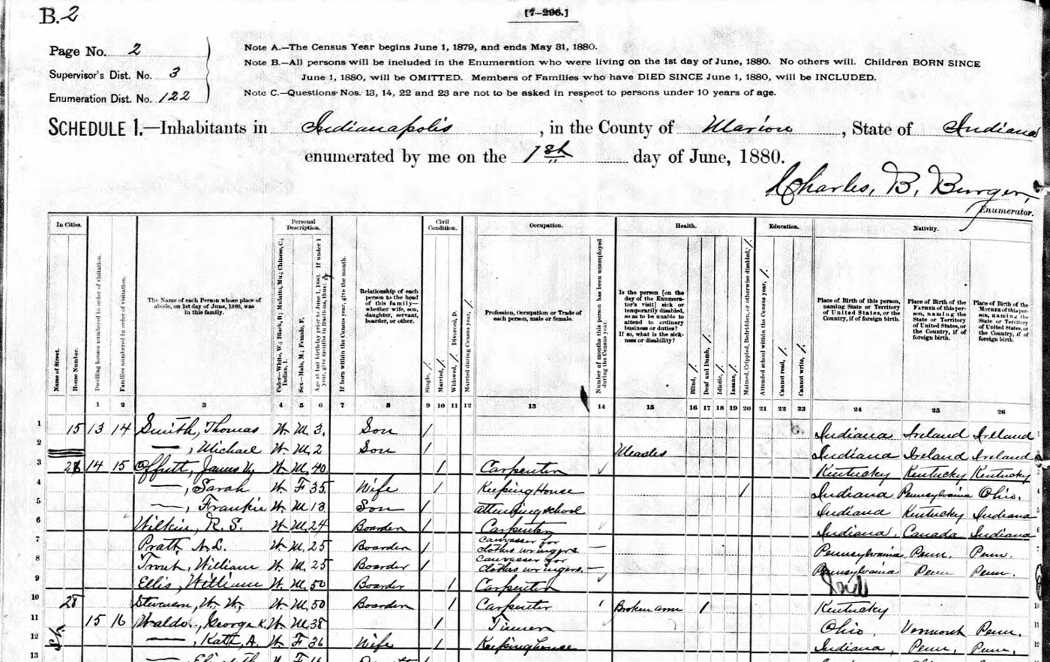 B.2
[7-296.]
Page No. 2
Supervisor's Dist. No. 3
Enumeration Dist. No. 122
Note A.—The Census Year begins June 1, 1879, and ends May 31, 1880.
Note B.—All persons will be included in the Enumeration who were living on the 1st day of June, 1880. No others will. Children BORN SINCE
June 1, 1880, will be OMITTED. Members of Families who have DIED SINCE June 1, 1880, will be INCLUDED.
Note C.—Questions Nos. 13, 14, 22 and 23 are not to be asked in respect to persons under 10 years of age.
SCHEDULE 1.—Inhabitants in Indianapolis, in the County of Marion, State of Indiana
enumerated by me on the 1st day of June, 1880.
Charles, B, Burger
Enumerator.
In Cities. Personal Description. Civil Condition. Occupation. Health. Education. Nativity.
Name of Street.
Home Number.
Dwelling houses numbered in order of visitation.
Families numbered in order of visitation.
The Name of each Person whose place of abode, on 1st day of June, 1880, was in this family.
Color—White, W.; Black, B.; Mulatto, Mu.; Chinese, C.; Indian, I.
Sex—Male, M.; Female, F.
If born within the Census year, give the month.
Relationship of each person to the head of this family—whether wife, son, daughter, servant, boarder, or other.
Single, /
Married, /
Widowed, / Divorced, D.
Married during Census year, /
Profession, Occupation or Trade of each person, male or female.
Number of months this person has been unemployed during the Census year.
Is the person [on the day of the Enumerator's visit] sick or temporarily disabled, so as to be unable to attend to ordinary business or duties? If so, what is the sickness or disability?
Blind, /
Deaf and Dumb, /
Idiotic, /
Insane, /
Maimed, Crippled, Bedridden, or otherwise disabled, /
Attended school within the Census year, /
Cannot read, /
Cannot write, /
Place of Birth of this person, naming State or Territory of United States, or the Country, if of foreign birth.
Place of Birth of the Father of this person, naming the State or Territory of United States, or the Country, if of foreign birth.
Place of Birth of the Mother of this person, naming the State or Territory of United States, or the Country, if of foreign birth.
1 2 3 4 5 6 7 8 9 10 11 12 13 14 15 16 17 18 19 20 21 22 23 24 25 26
1 15 13 14 Smith, Thomas W M 3 Son / Indiana Ireland Ireland
2 —, Michael W M 2 Son / Measles Indiana Ireland Ireland
3 14 15 Offutt, James W M 40 / Carpenter Kentucky Kentucky Kentucky
4 —, Sarah W F 35 Wife / Keeping House / Indiana Pennsylvania Ohio.
5 —, Frankie W M 13 Son / attending school Indiana Kentucky Indiana
6 Wilkin, R. S. W M 24 Boarder / Carpenter Indiana Canada Indiana
7 Pratt, A. L. W M 25 Boarder / Canvasser for clothes wringers — Pennsylvania Penn. Penn.
8 Trout, William W M 25 Boarder / Canvasser for clothes wringers. — Pennsylvania Penn Penn.
9 Ellis, William W M 50 Boarder / Carpenter
10 28 W. W. W M 50 Boarder / Carpenter Broken arm / Kentucky
11 15 16 Waldo, George W M 38 / Ohio. Vermont Penn.
12 —, Kath. A. W F 36 Wife / Keeping house Indiana, Penn, Penn.
13